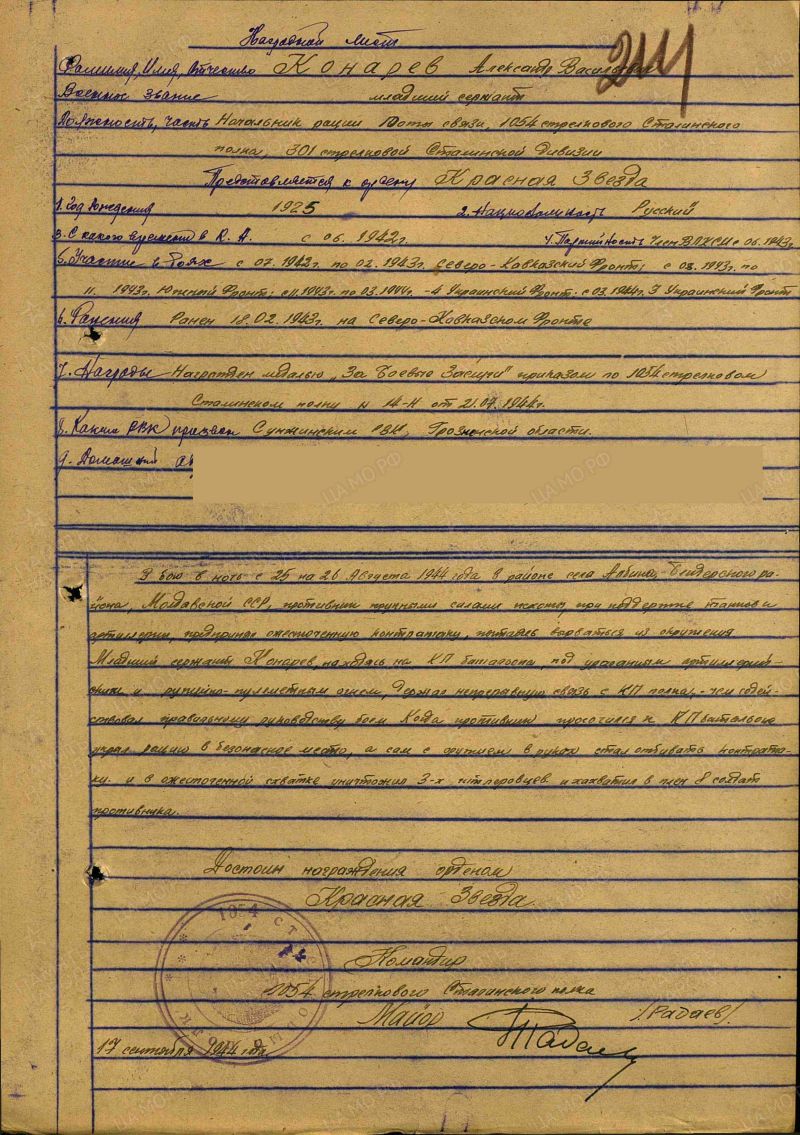 Наградной лист
211
Фамилия, Имя, Отчество Конарев Александр Васильевич
Военное звание младший сержант
Должность, часть Начальник рации Роты связи, 1054 стрелкового Сталинского
полка, 301 стрелковой Сталинской Дивизии
Представляется к ордену Красная Звезда
1. Год Рождения 1925 2. Национальность Русский
3. С какого времени в К.А. с 06.1942г. 4. Партийность Член ВЛКСМ с 06.1943г.
5. Участие в боях с 07.1942г. по 02.1943г. Северо-Кавказский Фронт; с 08.1943г. по
11. 1943г. Южный Фронт; с 11.1943г. по 03.1944г. - 4 Украинский Фронт; с 03.1944г. 3 Украинский Фронт
6. Ранения Ранен 18.02.1943г. на Северо-Кавказском Фронте
7. Награды Награжден медалью „За Боевые Заслуги" приказом по 1054 стрелковом
Сталинском полку N 14-Н от 21.07.1944г.
8. Каким РВК призван Сунжинским РВК, Грозненской области.
9. Домашний
В бою в ночь с 25 на 26 Августа 1944 года в районе села Албина, Бендерского ра-
йона, Молдавской ССР, противник крупными силами пехоты, при поддержке танков и
артиллерии, предпринял ожесточенную контратаку, пытаясь вырваться из окружения
Младший сержант Конарев, находясь на КП батальона, под ураганным артиллерий-
ским и ружейно-пулеметным огнем, держал непрерывную связь с КП полка, чем содей-
ствовал правильному руководству боем. Когда противник просочился к КП батальона
укрыл рацию в безопасное место, а сам с оружием в руках стал отбивать контрата-
ку и в ожесточенной схватке уничтожил 3-х гитлеровцев и захватил в плен 8 солдат
противника.
Достоин награждения орденом
Красная Звезда.
Командир
1054 стрелкового Сталинского полка
Майор /Радаев/
17 сентября 1944 года
1054
ЦА МО РФ